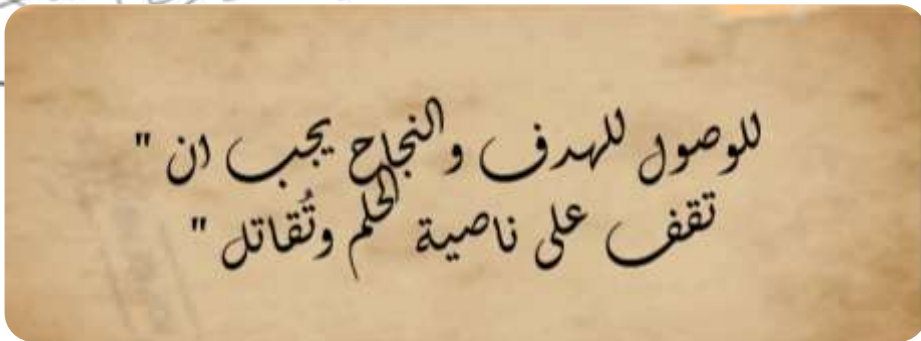 للوصول للهدف والنجاح يجب ان "
تقف على ناصية الحلم وتُقاتل "